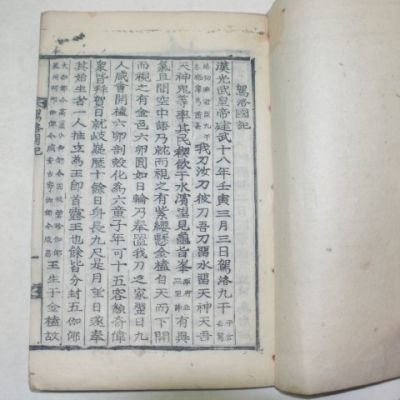 駕洛國記
漢光武皇帝建武十八年壬寅三月三日駕洛九干
我刀汝刀彼刀吾刀留水留天神天吾
天神鬼等率其民禊飲于水濱望見龜旨峯有異
氣且聞空中語乃就而視之有紫繩懸金榼自天而下開
而視之有金色六卵圓如日輪乃奉置我刀之家翌日九
人咸會開榼六卵剖殼化為六童子年可十五容貌奇偉
衆皆拜賀日就岐嶷歷十餘日身長九尺是月望日遂奉
其始生者一人推立為王即首露王也餘皆分封五伽倻
王生于金榼故
駕洛國記